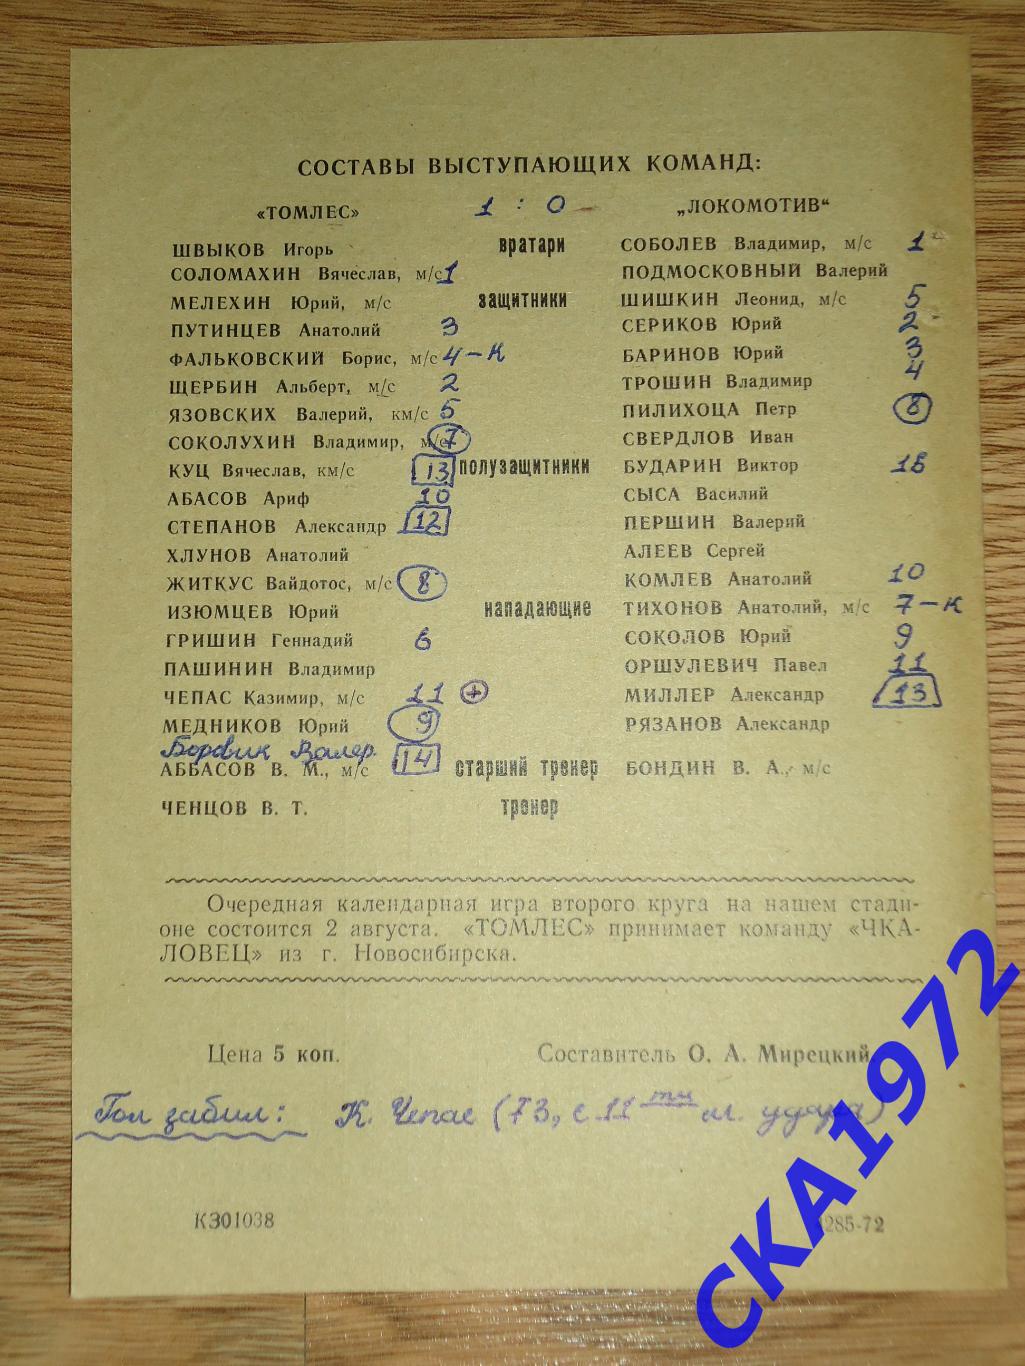 СОСТАВЫ ВЫСТУПАЮЩИХ КОМАНД:
«ТОМЛЕС» 1 : 0 „ЛОКОМОТИВ“
ШВЫКОВ Игорь вратари СОБОЛЕВ Владимир, м/с 1
СОЛОМАХИН Вячеслав, м/с 1 ПОДМОСКОВНЫЙ Валерий
МЕЛЕХИН Юрий, м/с защитники ШИШКИН Леонид, м/с 5
ПУТИНЦЕВ Анатолий 3 СЕРИКОВ Юрий 2
ФАЛЬКОВСКИЙ Борис, м/с 4-К БАРИНОВ Юрий 3
ЩЕРБИН Альберт, м/с 2 ТРОШИН Владимир 4
ЯЗОВСКИХ Валерий, км/с 5 ПИЛИХОЦА Петр 8
СОКОЛУХИН Владимир, м/с 7 СВЕРДЛОВ Иван
КУЦ Вячеслав, км/с 13 полузащитники БУДАРИН Виктор
АБАСОВ Ариф 10 СЫСА Василий
СТЕПАНОВ Александр 12 ПЕРШИН Валерий
ХЛУНОВ Анатолий АЛЕЕВ Сергей
ЖИТКУС Вайдотос, м/с 8 КОМЛЕВ Анатолий 10
ИЗЮМЦЕВ Юрий нападающие ТИХОНОВ Анатолий, м/с 7-К
ГРИШИН Геннадий 6 СОКОЛОВ Юрий 9
ПАШИНИН Владимир ОРШУЛЕВИЧ Павел 11
ЧЕПАС Казимир, м/с 11 + МИЛЛЕР Александр 13
МЕДНИКОВ Юрий 9 РЯЗАНОВ Александр
Боровик Валер. 14
АББАСОВ В. М., м/с старший тренер БОНДИН В. А., м/с
ЧЕНЦОВ В. Т. тренер
Очередная календарная игра второго круга на нашем стади-
оне состоится 2 августа. «ТОМЛЕС» принимает команду «ЧКА-
ЛОВЕЦ» из г. Новосибирска.
Цена 5 коп. Составитель О. А. Мирецкий.
Гол забил: К. Чепас (73, с 11 ти м. удара)
К301038 4285-72
СКА1972